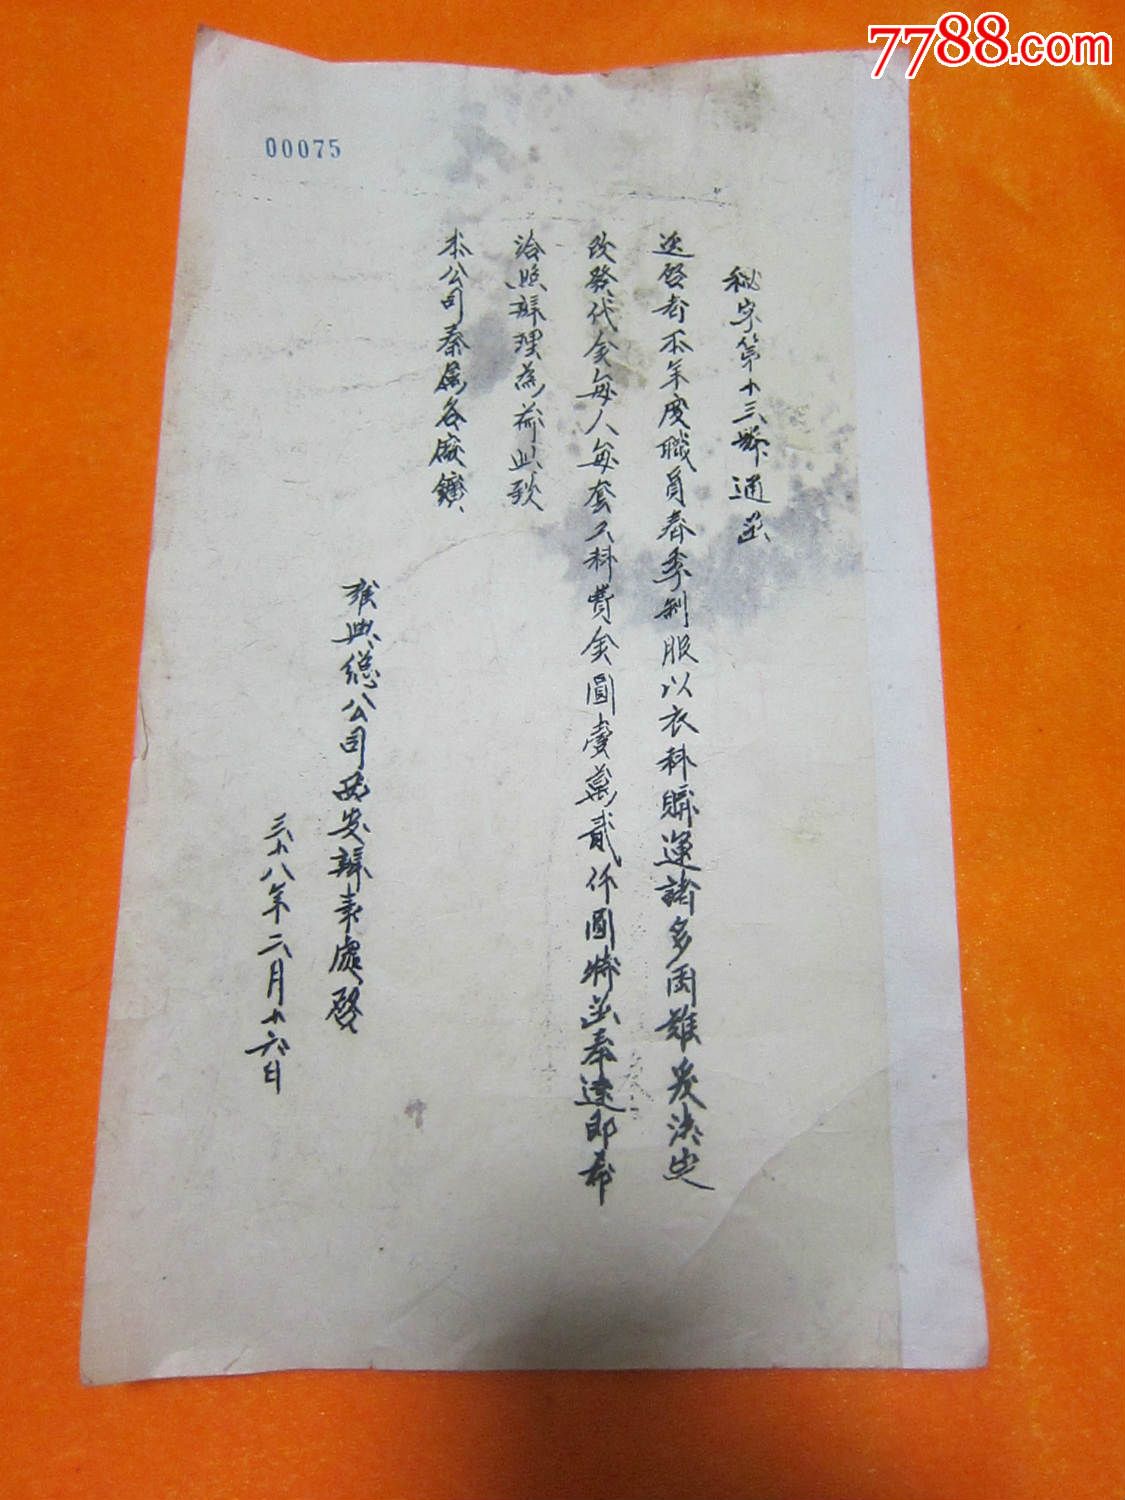 7788.com
00075
秘字第十三號通函
逕啓者本年度職員春季制服以衣料購運諸多困難爰決定
改發代金每人每套工料費金圓壹萬貳仟圓特函奉達即希
洽照辦理為荷此致
本公司秦屬各廠鑛
雍興總公司西安辦事處啓
三十八年二月十六日